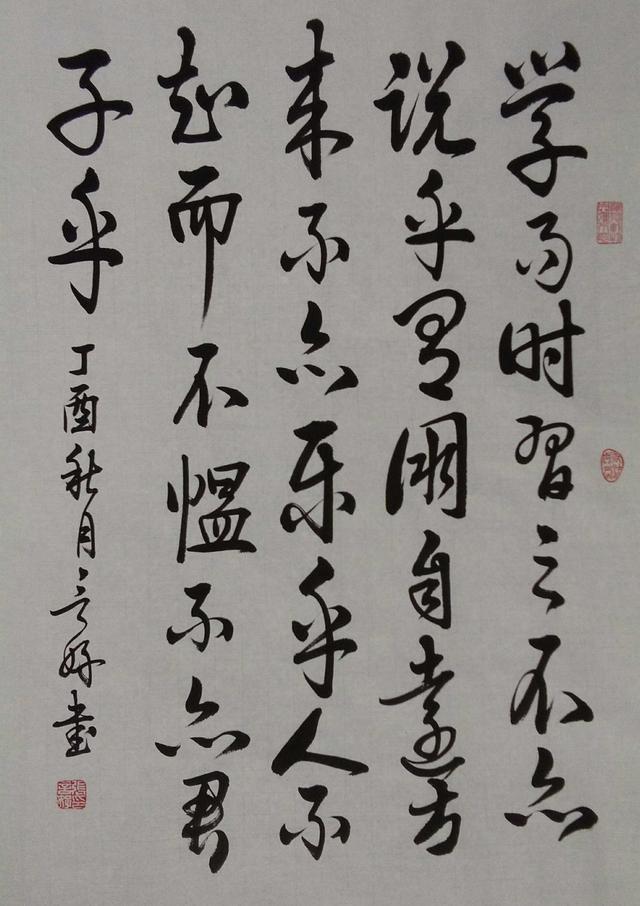 学而时習之不亦
说乎有朋自遠方
来不亦乐乎人不
知而不愠不亦君
子乎
丁酉秋月言好書